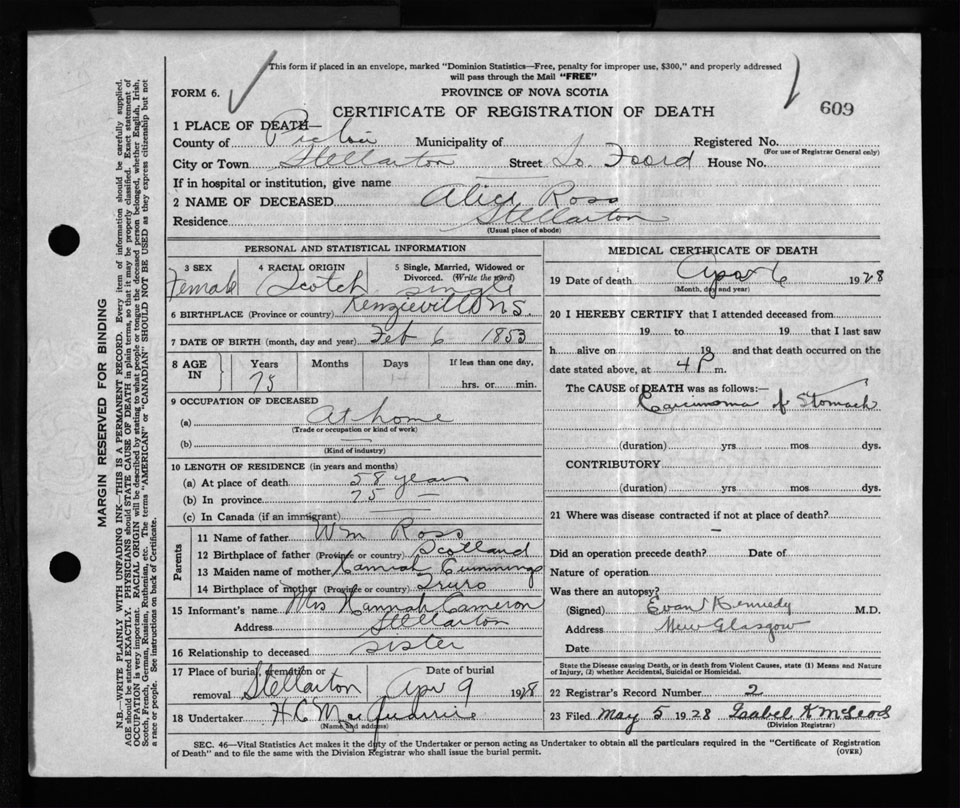 This form if placed in an envelope, marked "Dominion Statistics—Free, penalty for improper use, $300," and properly addressed
will pass through the Mail "FREE"
FORM 6.
PROVINCE OF NOVA SCOTIA
CERTIFICATE OF REGISTRATION OF DEATH
609
1 PLACE OF DEATH—
County of Pictou Municipality of Registered No.
(For use of Registrar General only)
City or Town Stellarton Street So. Foord House No.
If in hospital or institution, give name
2 NAME OF DECEASED Alice Ross
Residence Stellarton
(Usual place of abode)
PERSONAL AND STATISTICAL INFORMATION
3 SEX Female
4 RACIAL ORIGIN Scotch
5 Single, Married, Widowed or
Divorced. (Write the word)
single
6 BIRTHPLACE (Province or country) Kenzieville N.S.
7 DATE OF BIRTH (month, day and year) Feb 6 1853
8 AGE IN Years 75 Months Days If less than one day,
hrs. or min.
9 OCCUPATION OF DECEASED
(a) At home
(Trade or occupation or kind of work)
(b) —
(Kind of industry)
10 LENGTH OF RESIDENCE (in years and months)
(a) At place of death 58 years
(b) In province 75 —
(c) In Canada (if an immigrant)
Parents
11 Name of father Wm Ross
12 Birthplace of father (Province or country) Scotland
13 Maiden name of mother Hannah Cummings
14 Birthplace of mother (Province or country) Truro
15 Informant's name Mrs Hannah Cameron
Address Stellarton
16 Relationship to deceased sister
17 Place of burial, cremation or
removal Stellarton
Date of burial
Apr 9 1928
18 Undertaker H C MacQuarrie
(Name and address)
MEDICAL CERTIFICATE OF DEATH
19 Date of death Apr 6 1928
(Month, day and year)
20 I HEREBY CERTIFY that I attended deceased from
19 to 19 that I last saw
h alive on 19 and that death occurred on the
date stated above, at 4 P m.
The CAUSE of DEATH was as follows:—
Carcinoma of Stomach
(duration) yrs mos dys.
CONTRIBUTORY
(duration) yrs. mos dys.
21 Where was disease contracted if not at place of death?
—
Did an operation precede death? Date of
Nature of operation
Was there an autopsy?
(Signed) Evan Kennedy M.D.
Address New Glasgow
Date
State the Disease causing Death, or in death from Violent Causes, state (1) Means and Nature
of Injury, (2) whether Accidental, Suicidal or Homicidal.
22 Registrar's Record Number 2
23 Filed May 5 1928 Isabel K McLeod
(Division Registrar)
SEC. 46—Vital Statistics Act makes it the duty of the Undertaker or person acting as Undertaker to obtain all the particulars required in the "Certificate of Registration
of Death" and to file the same with the Division Registrar who shall issue the burial permit.
(OVER)
MARGIN RESERVED FOR BINDING
N.B.—WRITE PLAINLY WITH UNFADING INK—THIS IS A PERMANENT RECORD. Every item of information should be carefully supplied.
AGE should be stated EXACTLY. PHYSICIANS should STATE CAUSE OF DEATH in plain terms, so that it may be properly classified. Exact statement of
OCCUPATION is very important. RACIAL ORIGIN will be described by stating to what people or tongue the deceased person belonged, whether English, Irish,
Scotch, French, German, Russian, Ruthenian, etc. The terms "AMERICAN" or "CANADIAN" SHOULD NOT BE USED as they express citizenship but not
a race or people. See instructions on back of Certificate.